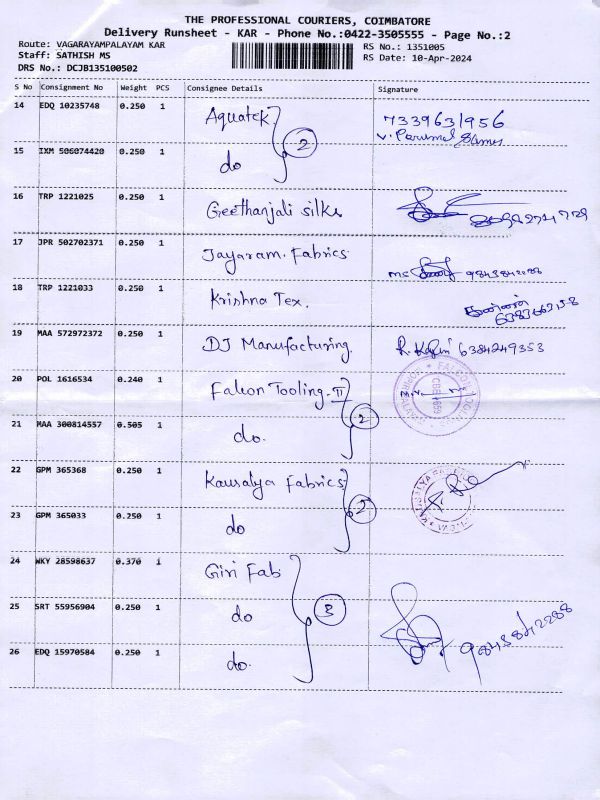 THE PROFESSIONAL COURIERS, COIMBATORE
Delivery Runsheet - KAR - Phone No.:0422-3505555 - Page No.:2
Route: VAGARAYAMPALAYAM KAR
RS No.: 1351005
Staff: SATHISH MS
RS Date: 10-Apr-2024
DRS No.: DCJB135100502
S No Consignment No Weight PCS Consignee Details Signature
14 EDQ 10235748 0.250 1 Aquatek 7339631956
2 V. Perumal Samy
15 IXM 506074420 0.250 1 do
16 TRP 1221025 0.250 1 Geethanjali silks
17 JPR 502702371 0.250 1 Jayaram. Fabrics 9843842288
18 TRP 1221033 0.250 1 Krishna Tex.
19 MAA 572972372 0.250 1 DJ Manufacturing. 6384249353
20 POL 1616534 0.240 1 Falcon Tooling. II
2
21 MAA 300814557 0.505 1 do.
22 GPM 365368 0.250 1 Kausalya Fabrics
2
23 GPM 365033 0.250 1 do
24 WKY 28598637 0.370 1 Giri Fab
25 SRT 55956904 0.250 1 do 3
9843842288
26 EDQ 15970584 0.250 1 do.